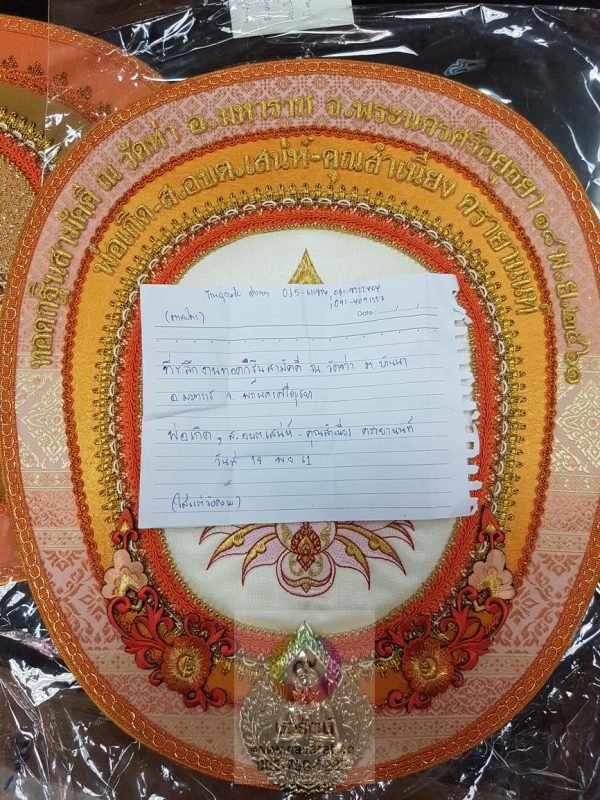 ทอดกฐินสามัคคี ณ วัดท่า อ.มหาราช จ.พระนครศรีอยุธยา ๑๘ พ.ย.๒๕๖๑
พ่อเกิด-ส.อบต.เสน่ห์-คุณสำเนียง ตรายานนท์
035-
Date :......./......./.......
ที่ระลึก งานทอดกฐินสามัคคี ณ วัดท่า ต. บ้านนา
อ. มหาราช จ. พระนครศรีอยุธยา
พ่อเกิด , ส. อบต. เสน่ห์ - คุณสำเนียง ตรายานนท์
วันที่ 18 พ.ย. 61